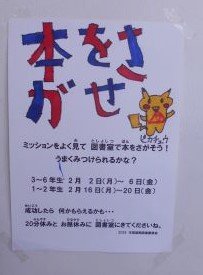 本をさがせ
ピカチュウ
ミッションをよく見て 図書室で本をさがそう!
うまくみつけられるかな?
3~6年生 2月 2日(月)~ 6日(金)
1~2年生 2月16日(月)~20日(金)
成功したら 何かもらえるかも・・・
20分休みと お昼休みに 図書室にきてくださいね。